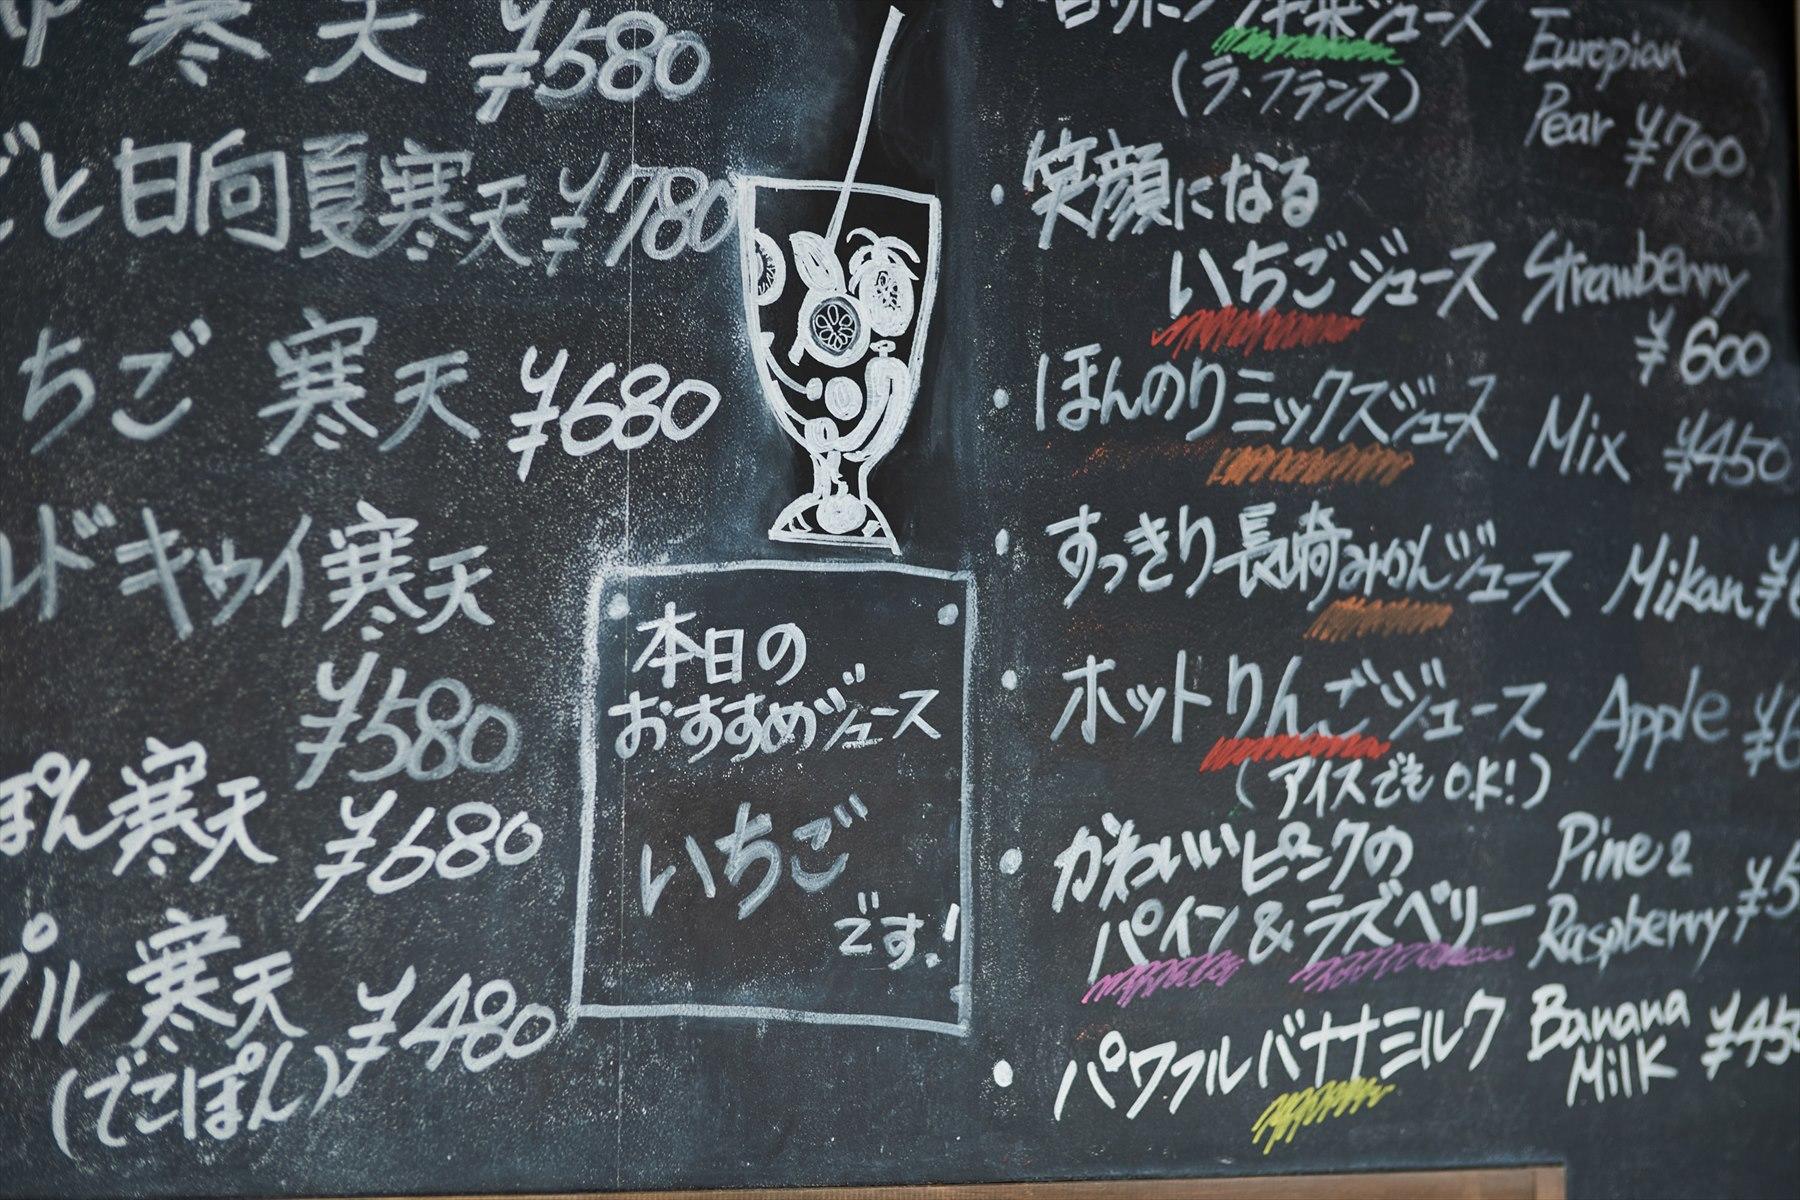 寒天 ¥580
ごと日向夏寒天 ¥780
ちご 寒天 ¥680
ルドキウイ寒天
¥580
ぽん寒天 ¥680
プル 寒天
(でこぽん) ¥480
本日の
おすすめジュース
いちご
です!
ジュース Europian
(ラ・フランス) Pear ¥700
・笑顔になる
いちごジュース Strawberry
¥600
・ほんのりミックスジュース Mix ¥450
・すっきり長崎みかんジュース Mikan ¥6
・ホットりんごジュース Apple ¥6
(アイスでもOK!)
・かわいいピンクの Pine 2
パイン&ラズベリー Raspberry ¥5
・パワフルバナナミルク Banana
Milk ¥45